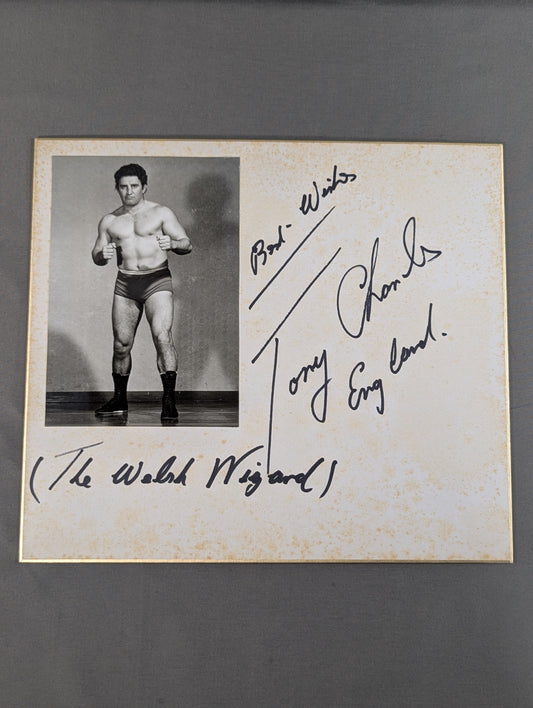 Best Wishes
Tony Charles
England.
(The Welsh Wizard)